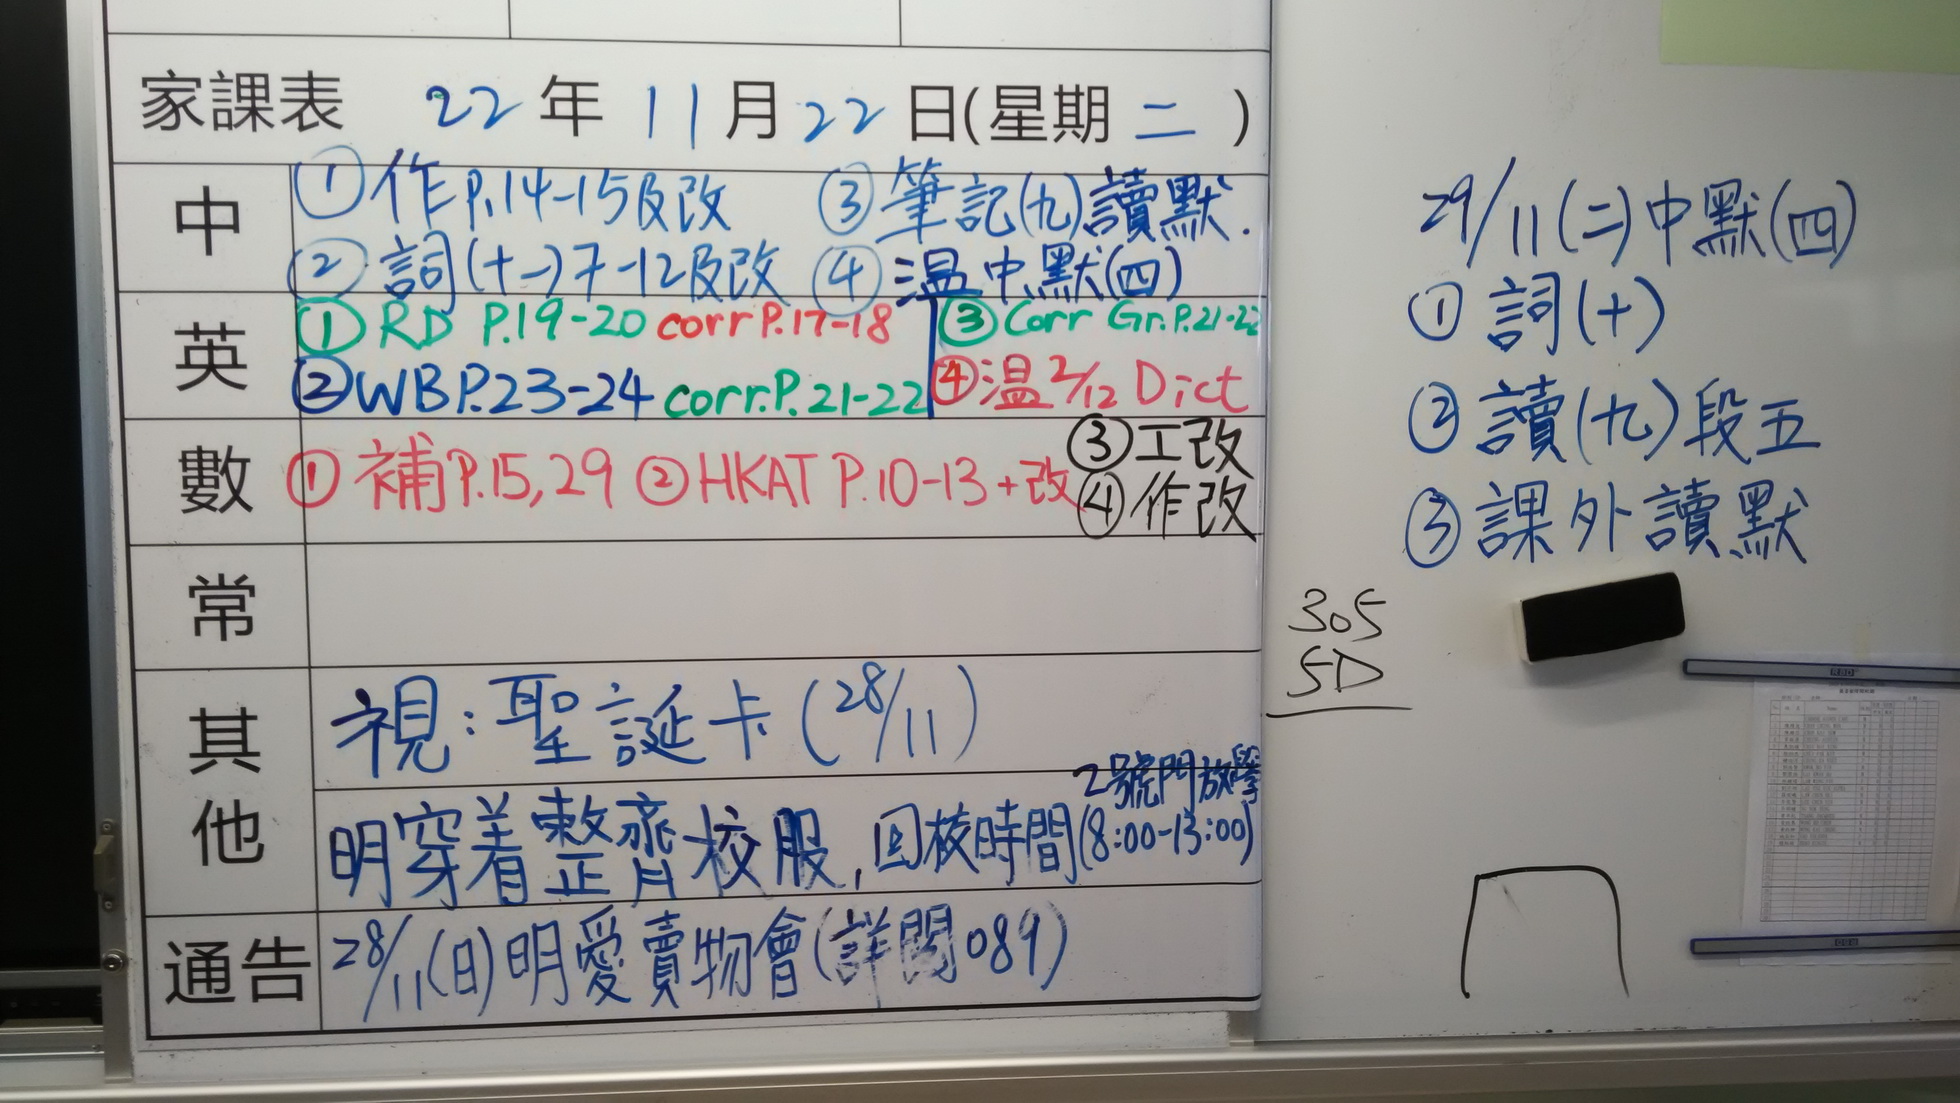 家課表 22年11月22日(星期二)
中
①作P.14-15及改 ③筆記(九)讀默.
②詞(十一)7-12及改 ④温中默(四)
英
①RD P.19-20 corr P.17-18 ③Corr Gr.P.21-22
②WB P.23-24 corr.P.21-22 ④温2/12 Dict
數
①補P.15,29 ②HKAT P.10-13+改
③工改
④作改
常
其他
視:聖誕卡(28/11)
2號門放學
明穿着整齊校服,回校時間(8:00-13:00)
通告
28/11(日)明愛賣物會(詳閱089)
29/11(二)中默(四)
①詞(十)
②讀(九)段五
③課外讀默
305
5D